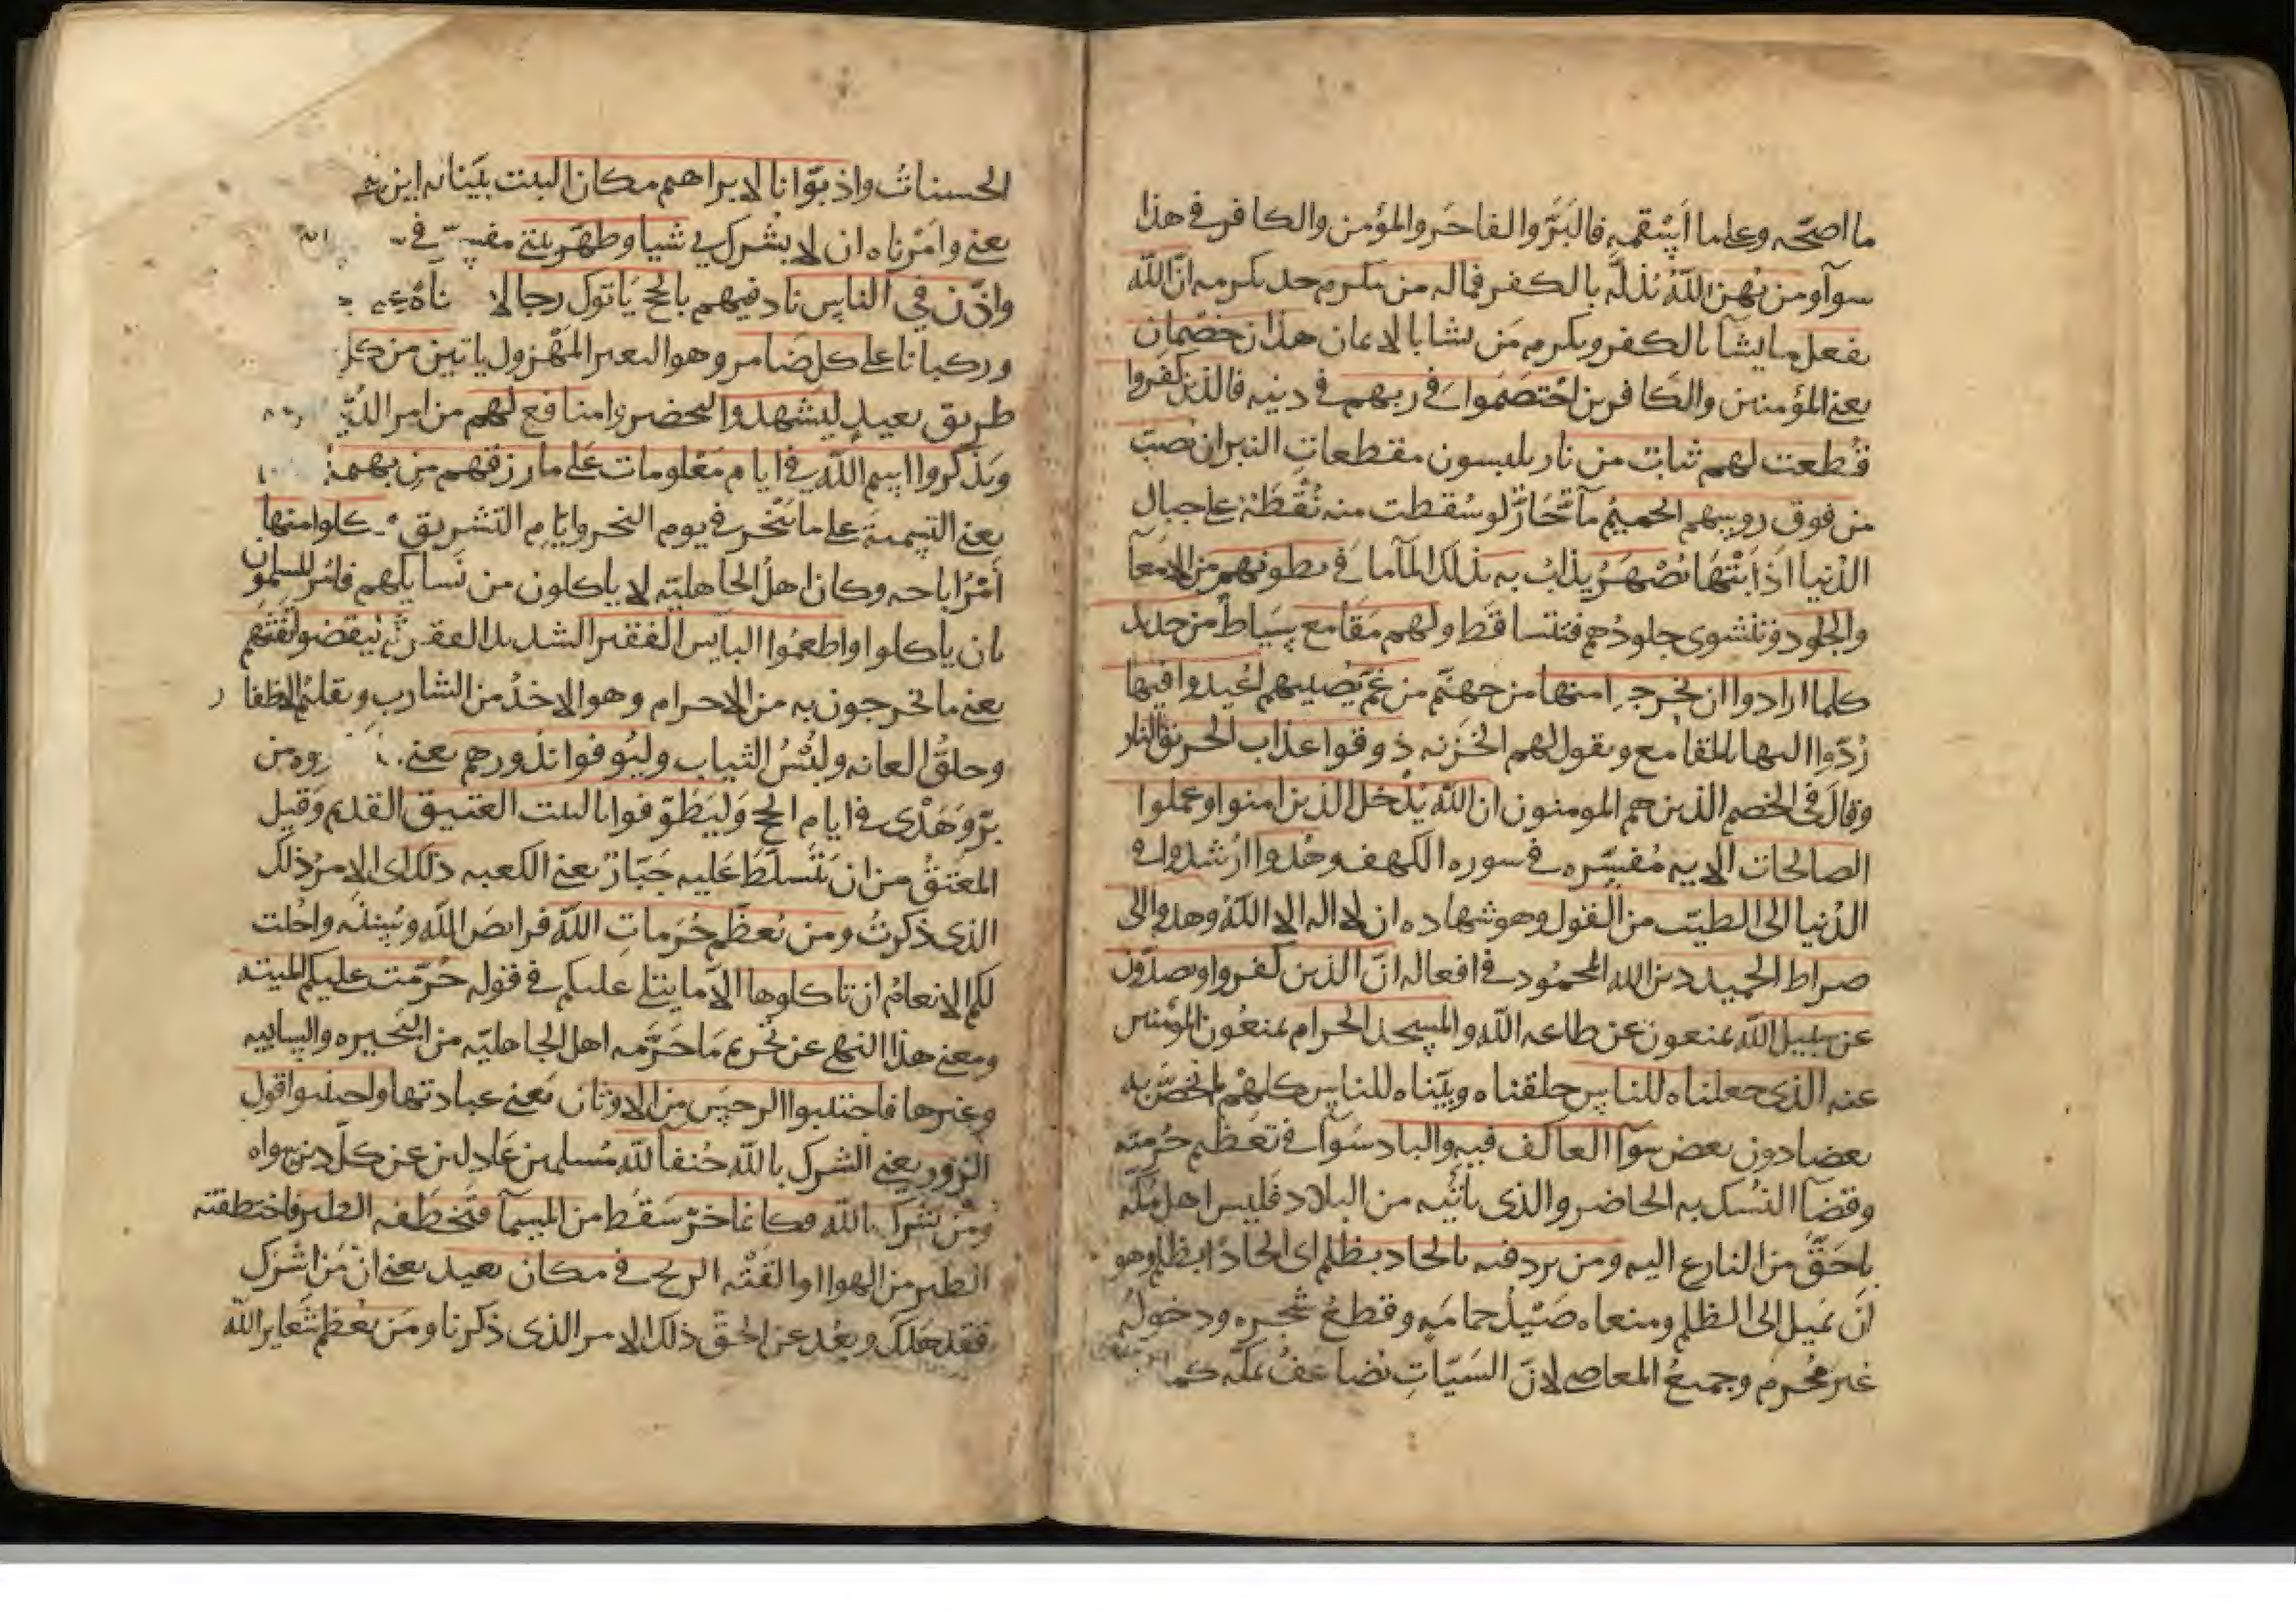 ما اصحه وعلى ما اسقمه فالبَرّ والفاجر والمؤمن والكافر في هذا
سوآ ومن يُهن اللّهُ يُذلّه بالكفر فماله من مكرم احد يكرمه انّ اللّه
يفعل ما يشآ بالكفر ويكرم من يشا بالايمان هذان خصمان
يعنى المؤمنين والكافرين اختصموا في ربهم في دينه فالذين كفروا
قُطعت لهم ثياب من نار يلبسون مقطعاتِ النيران يصبّ
من فوق روسهم الحميمُ مآ حَارّ لو سُقطت منه نُقْطَة على جبال
الدنيا اذَابَتْهَا يُصْهَرُ يذابُ به بذلك المآ ما في بطونهم من الامعآ
والجلود وتنشوى جلودُهم فتتساقط ولهم مَقَامع سِيَاط من حديد
كلما ارادوا ان يخرجوا منها من جهنّم من غمّ يُصيبهم اعيدوا فيها
رُدّوا اليها بالمقامع ويقول لهم الخزنه ذوقوا عذاب الحريق النار
وقالَ في الخصم الذين هم المومنون ان اللّه يُدْخل الذين امنوا وعملوا
الصالحات الايه مُفسَّره في سوره الكهف وهُدوا ارشدوا في
الدُنيا الى الطيّب من القول وهو شهاده ان لا اله الا اللّه وهدوا الى
صراط الحميد دين الله المحمُود في افعاله انّ الذين كفروا ويصدّون
عن سبيل اللّه يمنعون عن طاعه اللّه والمسجد الحرام يمنعُون المؤمنين
عنه الذى جعلناه للناس خلقناه وبيّناه للناس كلهمْ لم نخصّ به
بعضا دون بعض سوآ العاكف فيه والباد سَوآ في تعظيم حُرمته
وقضآ النُسك به الحاضر والذى يأتيه من البلاد فليس اهل مكّه
باحَقّ من النازع اليه ومن يرد فيه بالحاد بظلم اى الحادًا بظلم وهو
انَ يميل الى الظلم ومنعاه صَيْدُ حمامه وقطعُ شجره ودخولُه
غير مُحرم وجميعُ المعاصي لانّ السَيّاتِ تُضاعفُ بمكّه كما
الحسناتُ واذ بوّانا لابراهيم مكان البيت بيّنا له اين
يعنى وامَرناه ان لا يشرك بي شيا وطهّر بيتى في
واذّن في الناس ناد فيهم بالحجّ يَاتوك رجالا
وركبانا على كل ضَامر وهو البعير المَهْزول ياتين من كل
طريق بعيدٍ ليَشهدوا ليحضروا منافع لهم من امر
ويذكروا اسم اللّه في ايام مَعْلومات على ما رزقهم من بهيمة
يعنى التسميةَ على ما يُنْحر في يوم النحر وايّام التشريق كلوا منها
أَمْرُ اباحه وكان اهلُ الجاهليّه لا ياكلون من نَسايكهم فامُر المسلمون
بان ياكلوا واطعمُوا البآيس الفقير الشديد الفقر ثمّ ليقضوا تفثهم
يعنى ما تخرجون به من الاحرام وهو الاخذُ من الشارب وتقليمُ الاظفا ر
وحلقُ العانه ولُبْسُ الثياب وليُوفوا نذورهم يعنى من
برّ وَهَدْى في ايام الحج وَليَطوّفوا بالبيت العتيق القديم وقيل
المعتقُ من ان يَتَسلّط عَليه جَبّارٌ يعنى الكعبه ذلك اى الامرُ ذلك
الذى ذكرتُ ومن يُعظّم حُرَماتِ اللّه فرايضَ اللّه وسُننه واحُلت
لكم الانعامُ ان تاكلوها الاّ ما يتلى عليكم في قوله حُرّمت عليكم الميته
ومعنى هذا النهى عن تحريم مَا حَرّمه اهل الجاهليّه من البَحيره والسايبه
وغيرها فاجتنبوا الرجسَ من الاوثان يَعنى عبادتها واجتنبوا قول
الزور يعنى الشرك باللّه حُنفا للّه مُسلمين عَادلين عن كلّ دين سواه
ومَن يُشرك باللّه فكانما خرّ سَقط من السمآ فتخطفه الطير فاختطفته
الطير من الهوا او القَتْه الريح في مكان بعيد يعنى انّ مَن اشرك
فقد هلك وبعُد عن الحقّ ذلك الامر الذى ذكرنا ومَن يُعظم شعاير اللّه